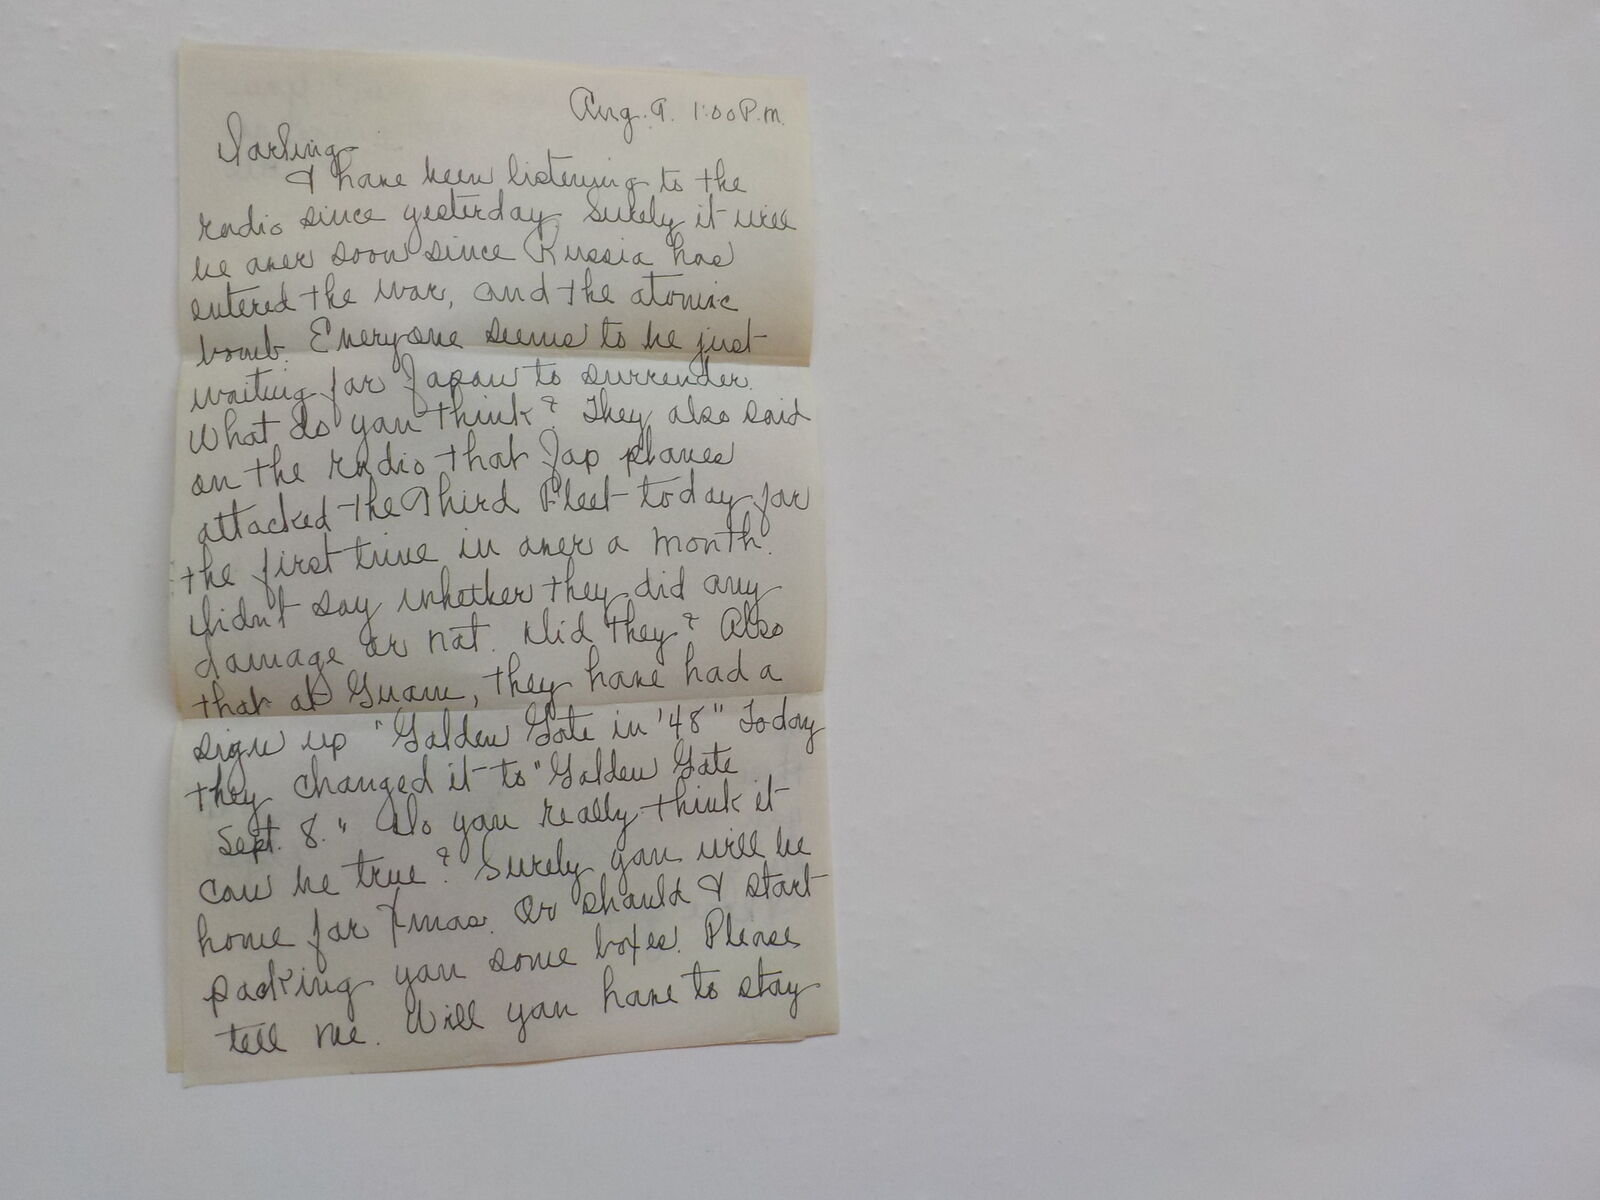 Aug. 9. 1:00 P.m.
Darling-
I have been listening to the
radio since yesterday. Surely it will
be over soon since Russia has
entered the war, and the atomic
bomb. Everyone seems to be just
waiting for Japan to surrender.
What do you think? They also said
on the radio that Jap planes
attacked the Third Fleet today for
the first time in over a month.
Didn't say whether they did any
damage or not. Did they? Also
that at Guam, they have had a
sign up "Golden Gate in '48" Today
they changed it to "Golden Gate
Sept. 8." Do you really think it
can be true? Surely you will be
home for Xmas. Or should I start
packing you some boxes. Please
tell me. Will you have to stay